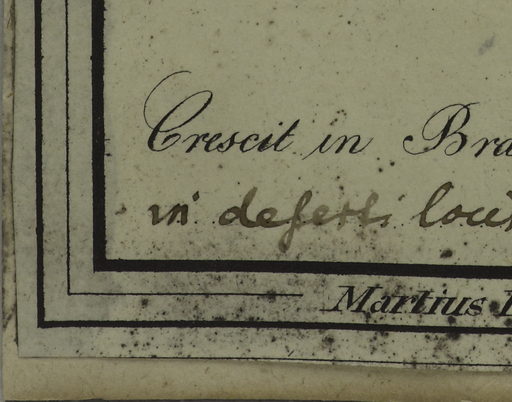 Crescit in Bra
in deserti loci
Martius